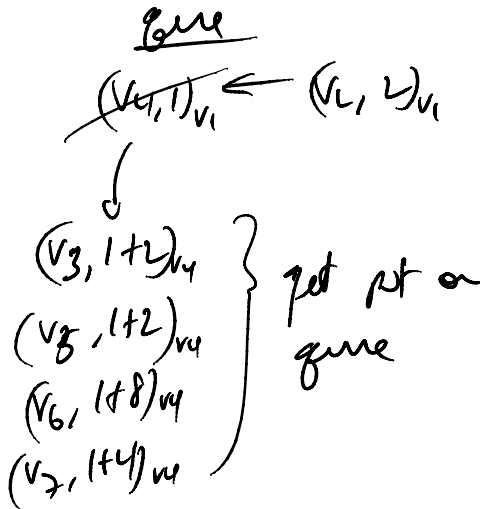 queue
(V4, 1)V1 ← (V2, 2)V1
(V3, 1+2)V4
(V5, 1+2)V4
(V6, 1+8)V4
(V7, 1+4)V4
get put on
queue